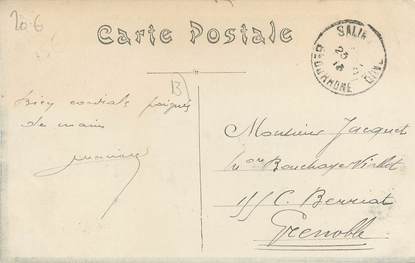 20-6
Carte Postale
SALIN
B. DU RHONE
13
bien cordiale poignée
de main
Monsieur Jacquet
Bouchayer Viallet
155 C. Berriat
Grenoble